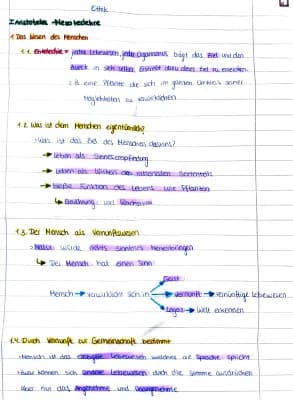 Ethik
I Aristoteles - Mesotedelehre
1 Das Wesen des Menschen
1.1. Entelechie = jedes Lebewesen, jeder Organismus trägt das Ziel und den
Zweck in sich selbst. Es strebt dazu dieses Ziel zu erreichen
z.B. eine Pflanze die sich im ganzen seiner
Möglichkeiten zu verwirklichen
1.2. Was ist dem Menschen eigentümlich?
- Was ist das Ziel des Menschen
→ Leben als Sinnesempfindung
→ Leben als Wirken des rationalen Seelenteils
→ bloße Funktion des Lebens wie Pflanzen
↳ Ernährung und Wachstum
1.3. Der Mensch als Vernunftwesen
- Natur würde nichts sinnloses hervorbringen
↳ Der Mensch hat einen Sinn
Geist
Mensch → verwirklicht sich in → Vernunft → vernünftige Lebewesen
Logos → Welt erkennen
1.4. Durch Vernunft zur Gemeinschaft bestimmt
- Mensch ist das einzige Lebewesen welches die Sprache spricht
- Zwar können sich andere Lebewesen durch die Stimme ausdrücken
aber nur das Angenehme und Unangenehme